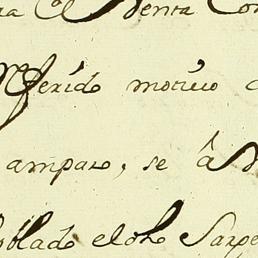 Venta Con
ferido motivo
amparo, se â
oblado el dho Sarge